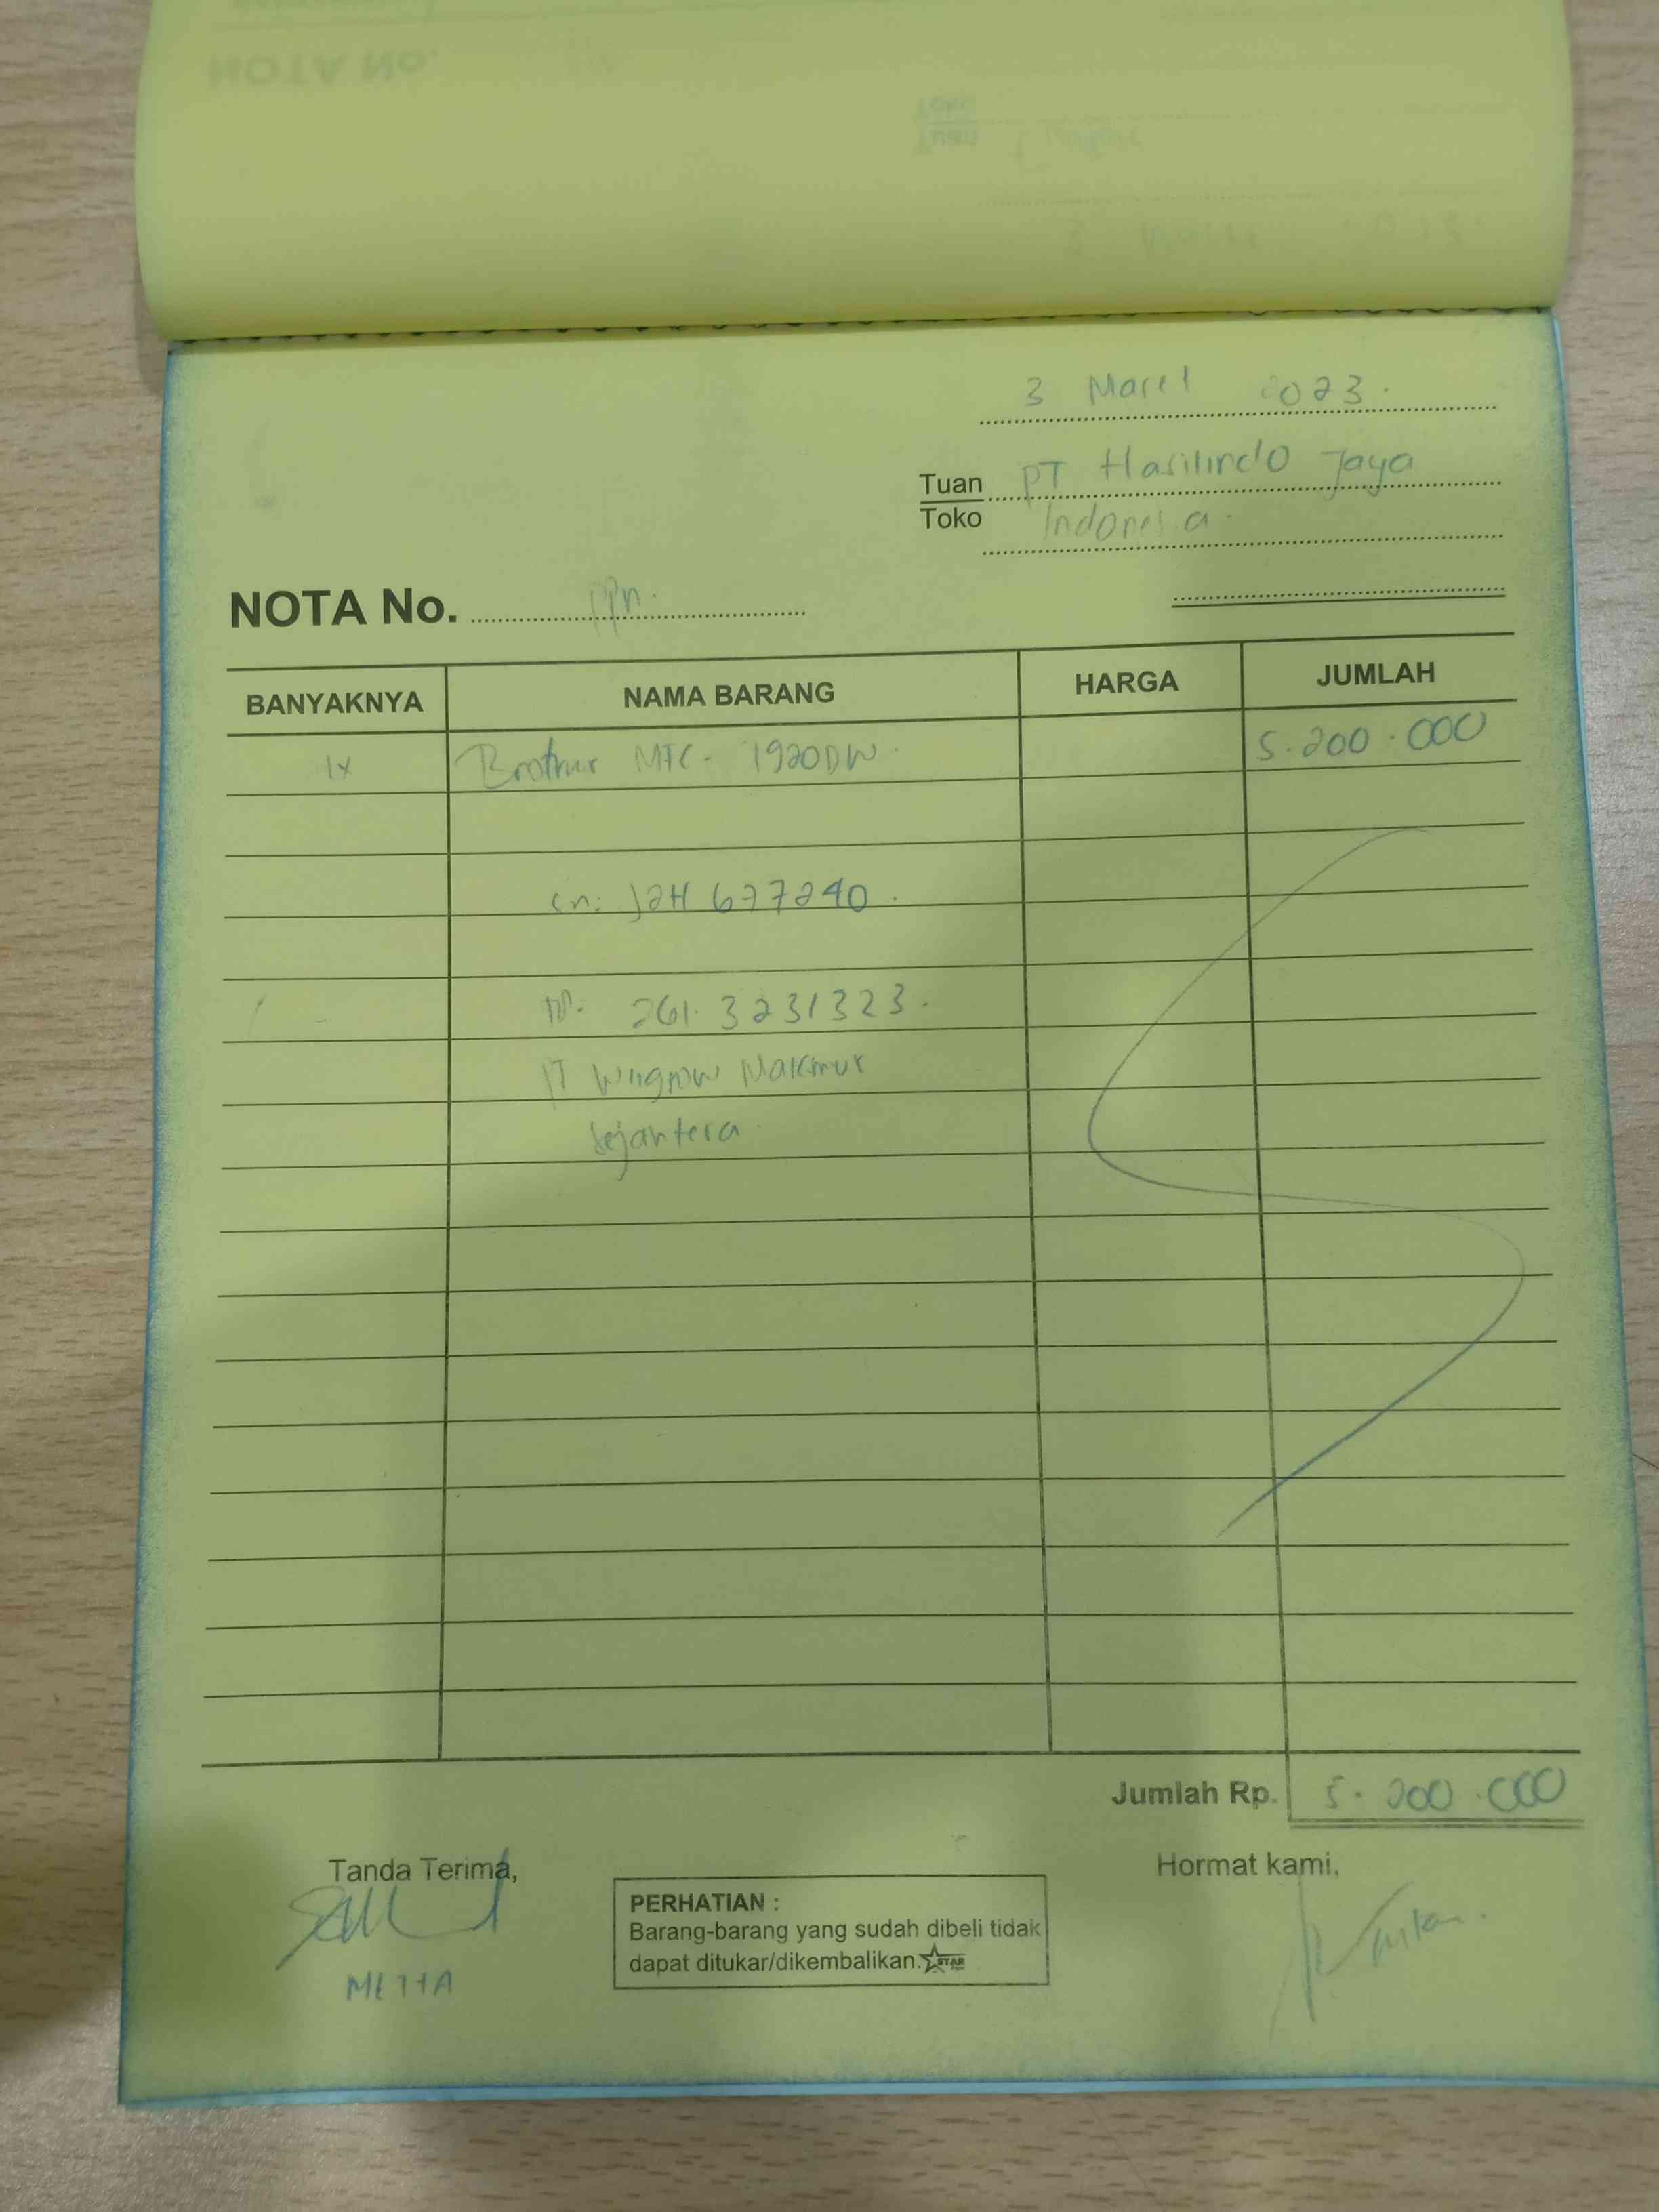 3 Maret 2023.
Tuan PT Hasilindo Jaya
Toko Indonesia.
NOTA No. PPn.
BANYAKNYA NAMA BARANG HARGA JUMLAH
1x Brother MFC-1920DW. 5.200.000
sn: J2H 677240.
261.3231323.
PT Makmur
Sejahtera
Jumlah Rp. 5.200.000
Tanda Terima, Hormat kami,
METTA
PERHATIAN :
Barang-barang yang sudah dibeli tidak
dapat ditukar/dikembalikan. STAR